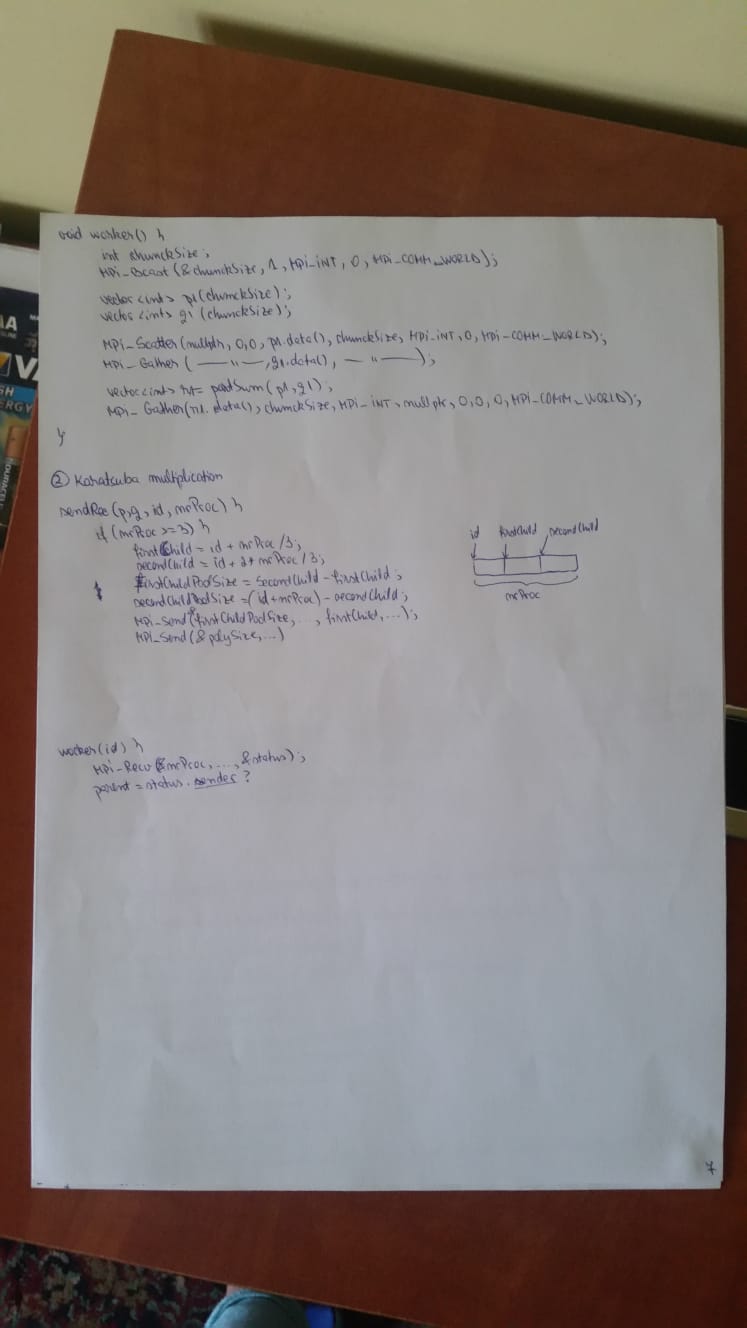 void worker() {
int chunckSize;
MPI_Bcast (&chunckSize, 1, MPI_INT, 0, MPI_COMM_WORLD);
vector<int> p1(chunckSize);
vector<int> q1(chunckSize);
MPI_Scatter(nullptr, 0, 0, p1.data(), chunckSize, MPI_INT, 0, MPI_COMM_WORLD);
MPI_Gather ( —— " ——, q1.data(), —— " ——);
vector<int> r1 = partSum(p1, q1);
MPI_Gather(r1.data(), chunckSize, MPI_INT, nullptr, 0, 0, 0, MPI_COMM_WORLD);
}
② Karatsuba multiplication
sendRec(p, q, id, nrProc) {
if (nrProc >= 3) {
firstChild = id + nrProc / 3;
secondChild = id + 2 * nrProc / 3;
firstChildPoolSize = secondChild - firstChild;
secondChildPoolSize = (id + nrProc) - secondChild;
MPI_Send(&firstChildPoolSize, ..., firstChild, ...);
MPI_Send(&polySize, ...)
id firstChild secondChild
nrProc
worker(id) {
MPI_Recv(&nrProc, ..., &status);
parent = status.sender ?
7
AA
SH
ERGY
DURACELL